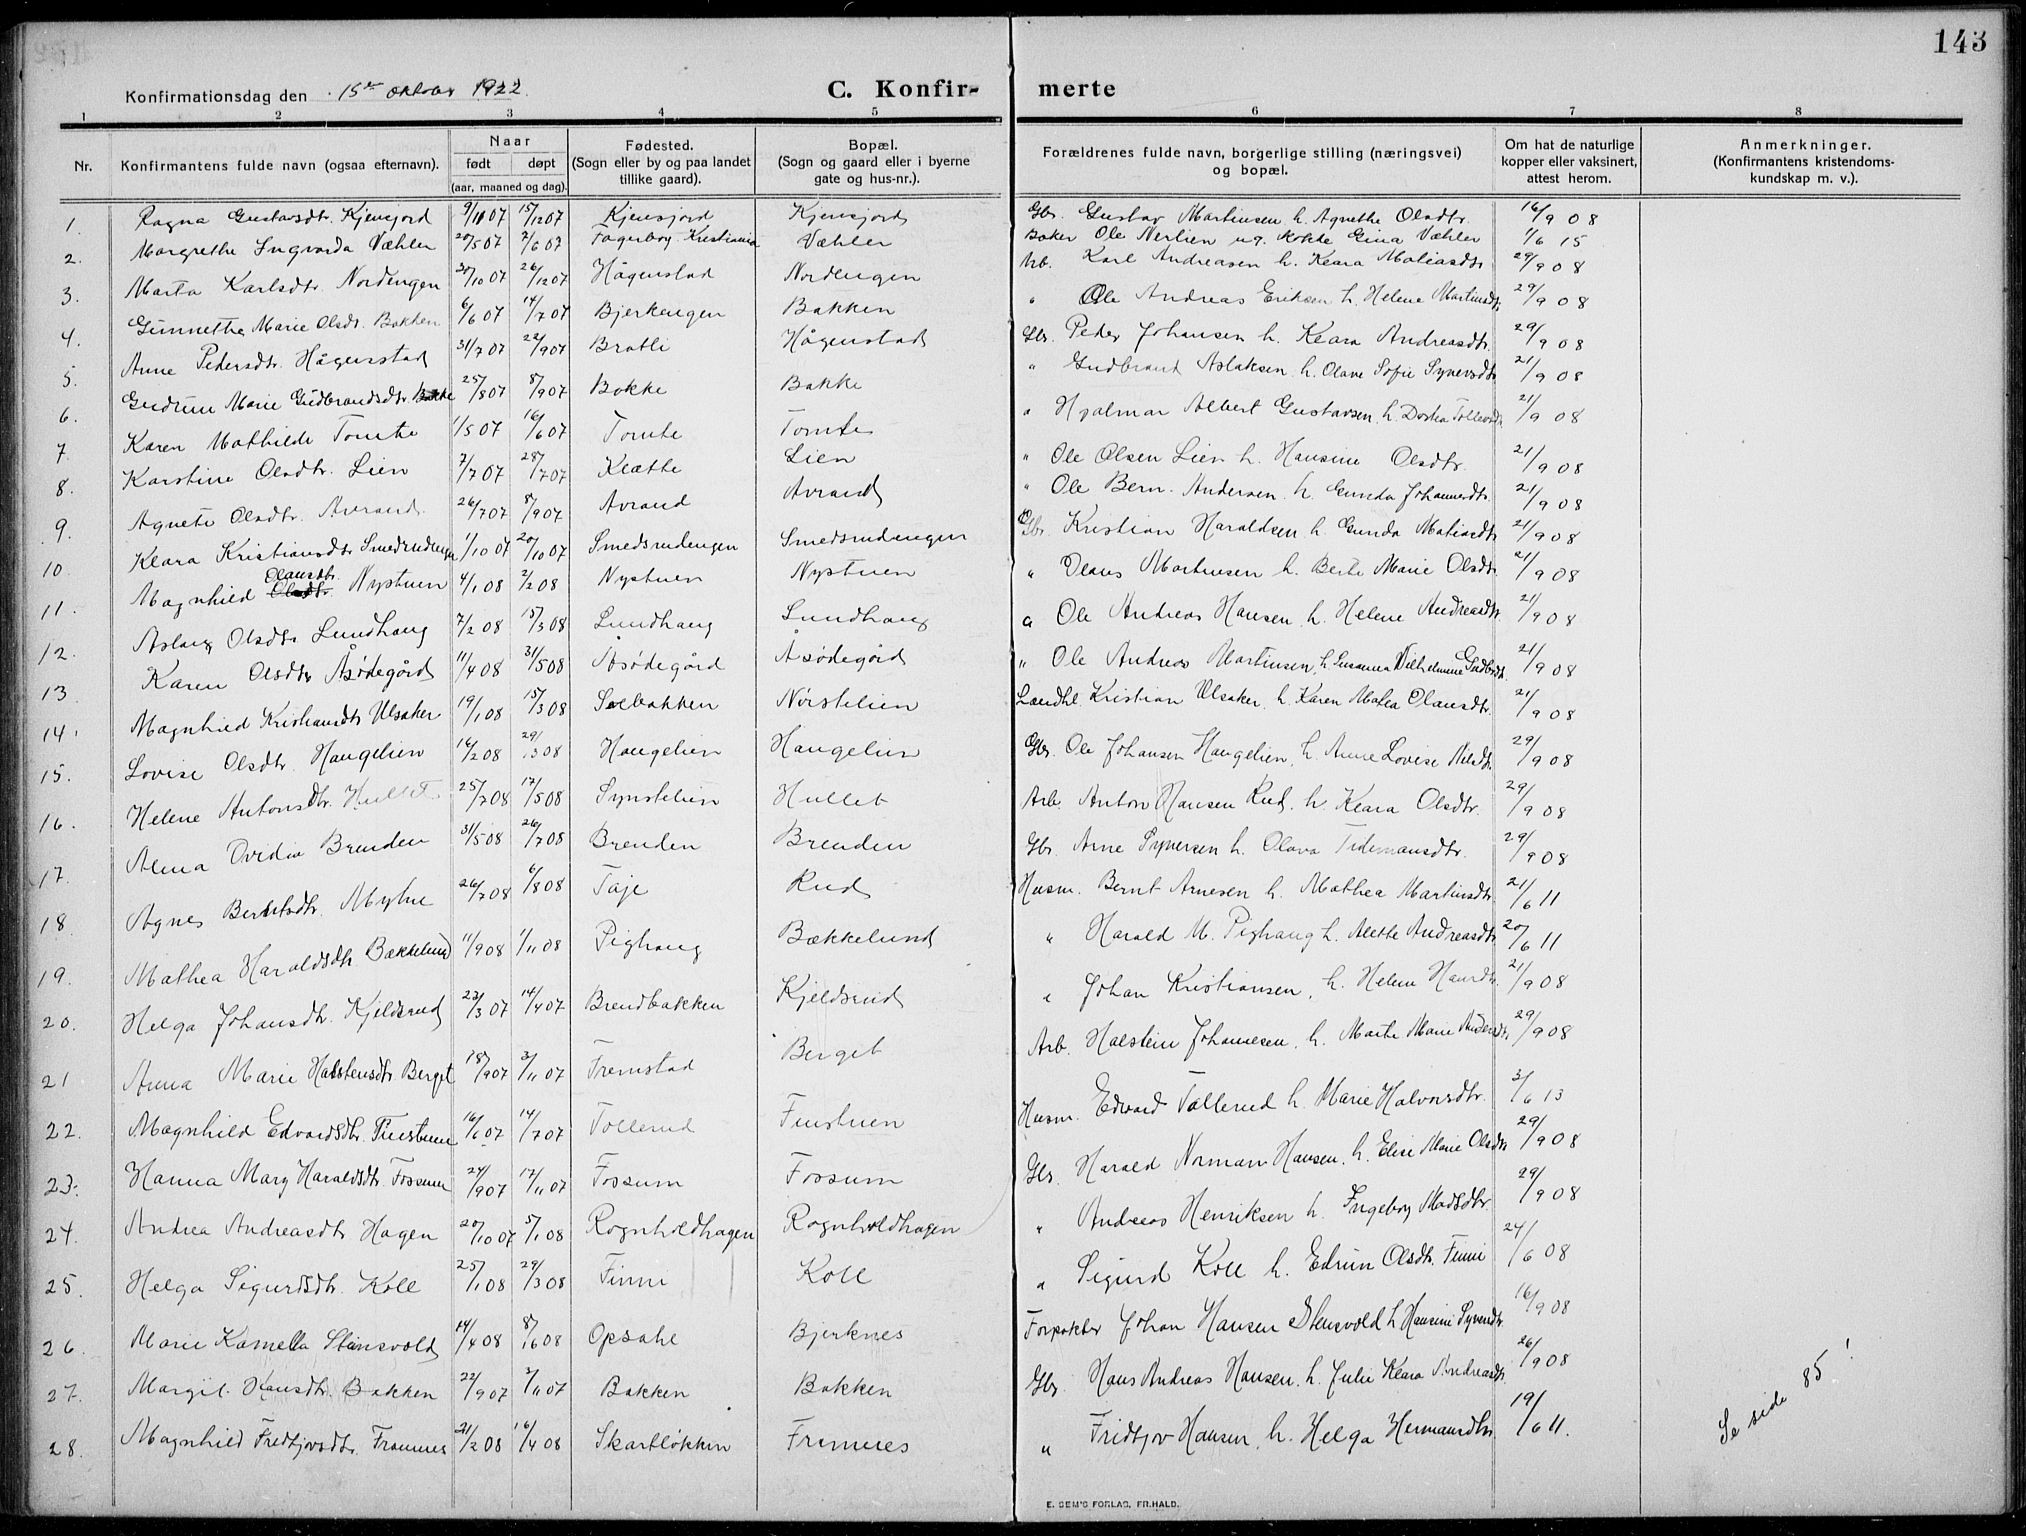 143
Konfirmationsdag den 15de oktober 1922.
C. Konfir-merte
1 2 3 4 5 6 7 8
Nr. Konfirmantens fulde navn (ogsaa efternavn). Naar født døpt (aar, maaned og dag). Fødested. (Sogn eller by og paa landet tillike gaard). Bopæl. (Sogn og gaard eller i byerne gate og hus-nr.). Forældrenes fulde navn, borgerlige stilling (næringsvei) og bopæl. Om hat de naturlige kopper eller vaksinert, attest herom. Anmerkninger. (Konfirmantens kristendoms-kundskap m. v.).
1. Ragna Gustavsdtr. Kjensjord 9/11 07 15/12 07 Kjensjord Kjensjord Gbr. Gustav Martinsen h. Agnethe Olsdtr. 16/9 08
2. Margrethe Ingvarda Væhler 20/5 07 2/6 07 Fagerborg Kristiania Væhler Baker Ole Nerlien ug. kokke Gina Væhler 1/6 15
3. Marta Karlsdtr. Nordengen 30/10 07 26/12 07 Hågenstad Nordengen Arb. Karl Andreasen h. Klara Matiasdtr 29/9 08
4. Gunnethe Marie Olsdtr. Bakken 6/6 07 14/7 07 Bjerkengen Bakken " Ole Andreas Eriksen h. Helene Martinsdtr 29/9 08
5. Anne Pedersdtr. Hågenstad 31/7 07 22/9 07 Bratli Hågenstad Gbr. Peder Johansen h. Klara Andreasdtr. 29/9 08
6. Gudrun Marie Gudbrandsdtr. Bakke 25/8 07 8/9 07 Bakke Bakke " Gudbrand Aslaksen h. Olave Sofie Syversdtr 21/9 08
7. Karen Mathilde Tomte 1/5 07 16/6 07 Tomte Tomte " Hjalmar Albert Gustavsen h. Dortea 21/9 08
8. Karstine Olsdtr. Lien 7/7 07 28/7 07 Klætte Lien " Ole Olsen Lien h. Hansine Olsdtr. 21/9 08
9. Agnete Olsdtr. Avrand 26/7 07 8/9 07 Avrand Avrand " Ole Bern. Andersen h. Gunda Johannesdtr. 21/9 08
10. Klara Kristiansdtr Smedsrudengen 1/10 07 20/10 07 Smedsrudengen Smedsrudengen Gbr. Kristian Haraldsen h. Gunda Matiasdtr 21/9 08
11. Magnhild Olausdtr. Nystuen 4/1 08 2/2 08 Nystuen Nystuen " Olaus Martinsen h. Berte Marie Olsdtr. 21/9 08
12. Aslaug Olsdtr Lundhaug 7/2 08 15/3 08 Lundhaug Lundhaug " Ole Andreas Hansen h. Helene Andreasdtr. 21/9 08
13. Karen Olsdtr Åsødegård 11/4 08 31/5 08 Åsødegård Åsødegård " Ole Andreas Martinsen, h. Susanna Vilhelmine Gudbrdtr. 21/9 08
14. Magnhild Kristiansdtr Ulsaker 19/1 08 15/3 08 Solbakken Nørstelien Landhl. Kristian Ulsaker h. Karen Matea Olausdtr. 21/9 08
15. Lovise Olsdtr. Haugelien 16/2 08 29/3 08 Haugelien Haugelien Gbr. Ole Johansen Haugelien, h. Anne Lovise Nilsdtr 29/9 08
16. Helene Antonsdtr. Hullet 25/2 08 17/5 08 Synstelien Hullet Arb. Anton Hansen Rud. h. Klara Olsdtr. 29/9 08
17. Alma Ovidia Brenden 31/5 08 26/7 08 Brenden Brenden Gbr. Arne Syversen h. Olava Tidemansdtr. 29/9 08
18. Agnes Berntsdtr. Myhre 26/7 08 6/8 08 Taje Rud Husm. Bernt Arnesen h. Mathea Martinsdtr. 21/6 11
19. Mathea Haraldsdtr Bækkelund 11/9 08 1/11 08 Pighaug Bækkelund " Harald M. Pighaug h. Alette Andreasdtr. 20/6 11
20. Helga Johansdtr. Kjeldsrud 22/3 07 14/4 07 Brendbakken Kjeldsrud " Johan Kristiansen, h. Helene Hansdtr. 21/9 08
21 Anna Marie Halstensdtr. Berget 18/9 07 3/11 07 Fremstad Berget Arb. Halstein Johannesen, h. Marte Marie Andersdtr. 29/9 08
22. Magnhild Edvardsdtr. Finstuen 16/6 07 14/7 07 Tollerud Finstuen Husm. Edvard Tollerud h. Marie Halvorsdtr. 3/6 13
23. Hanna Mary Haraldsdtr. Fossum 24/9 07 17/11 07 Fossum Fossum Gbr. Harald Norman Hansen, h. Elise Marie Olsdtr 29/9 08
24. Andrea Andreasdtr Hagen 20/10 07 5/1 08 Rognholdhagen Rognholdhagen " Andreas Henriksen h. Ingeborg Madsdtr. 29/9 08
25. Helga Sigurdsdtr. Koll 25/1 08 29/3 08 Finni Koll " Sigurd Koll h. Edrun Olsdtr. Finni 24/6 08
26. Marie Kamella Stensvold 14/4 08 8/6 08 Opsahl Bjerknes Forpakter Johan Hansen Stensvold h. Hansine Syversdtr. 16/9 08
27. Margit. Hansdtr. Bakken 22/9 07 3/11 07 Bakken Bakken Gbr. Hans Andreas Hansen. h. Julie Klara Andreasdtr. 26/9 08
28. Magnhild Fredtjovsdtr. Framnes 21/2 08 16/4 08 Skartløkken Framnes " Fridtjov Hansen, h. Helga Hermansdtr. 19/6 11. Se side 85!
E. SEM'S FORLAG, FR.HALD.